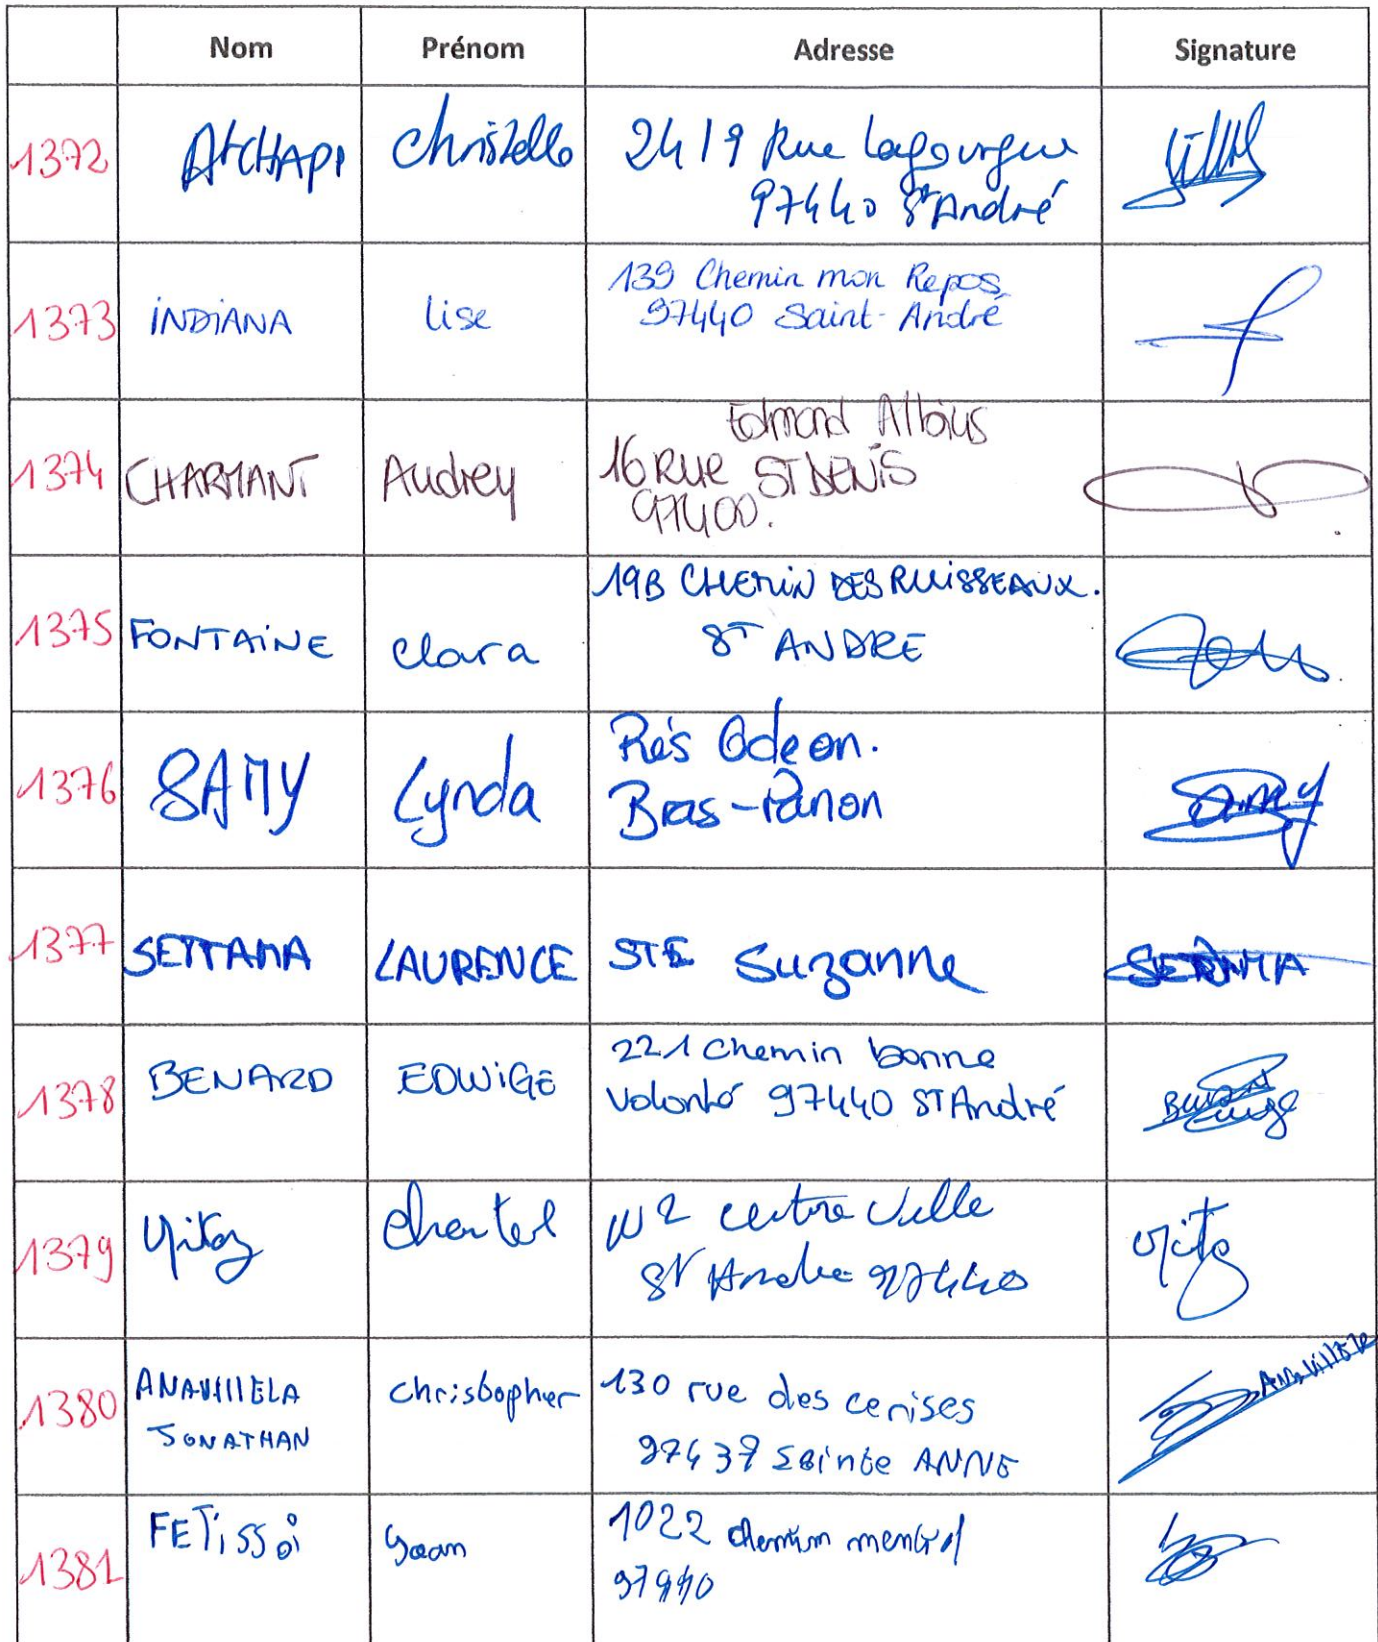 Nom Prénom Adresse Signature
1372 AtCHAPI Christelle 2419 Rue Lagourgue
97440 St André
1373 INDIANA Lise 139 Chemin mon Repos
97440 Saint-André
1374 CHARMANT Audrey 16 RUE Edmond Albius
97400. ST DENIS
1375 FONTAINE Clara 19B CHEMIN DES RUISSEAUX.
ST ANDRE
1376 SAMY Lynda Rés Odeon.
Bras-Panon
1377 SETTAMA LAURENCE STE Suzanne
1378 BENARD EDWIGE 221 chemin bonne
Volonté 97440 ST André
1379 Chantal centre Ville
St Andre 97440
1380 ANAVILLELA Christopher 130 rue des cerises
JONATHAN 97437 Sainte ANNE
1381 FETissoi Yoan 1022 chemin
97440